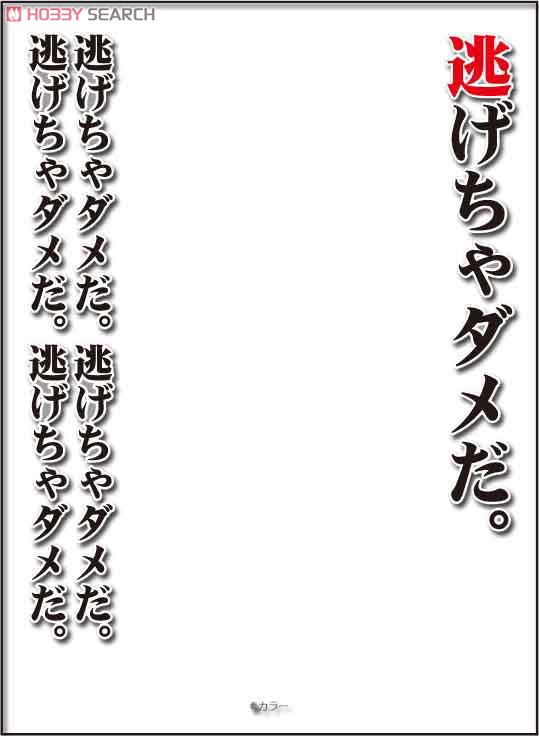 HOBBY SEARCH
逃げちゃダメだ。
逃げちゃダメだ。逃げちゃダメだ。
逃げちゃダメだ。逃げちゃダメだ。
カラー